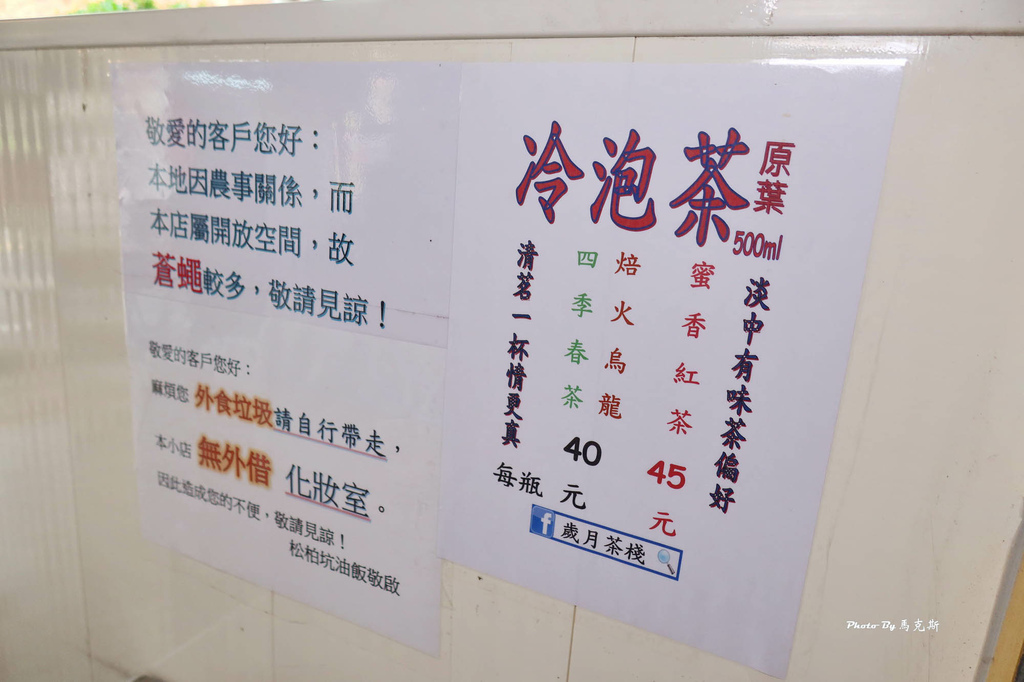 敬愛的客戶您好：
本地因農事關係，而
本店屬開放空間，故
蒼蠅較多，敬請見諒！
敬愛的客戶您好：
麻煩您 外食垃圾請自行帶走，
本小店 無外借 化妝室。
因此造成您的不便，敬請見諒！
松柏坑油飯敬啟
冷泡茶
原葉
500ml
淡中有味茶偏好
蜜香紅茶
45
元
焙火烏龍
四季春茶
40
元
每瓶
清茗一杯情更真
f 歲月茶棧
Photo By 馬克斯